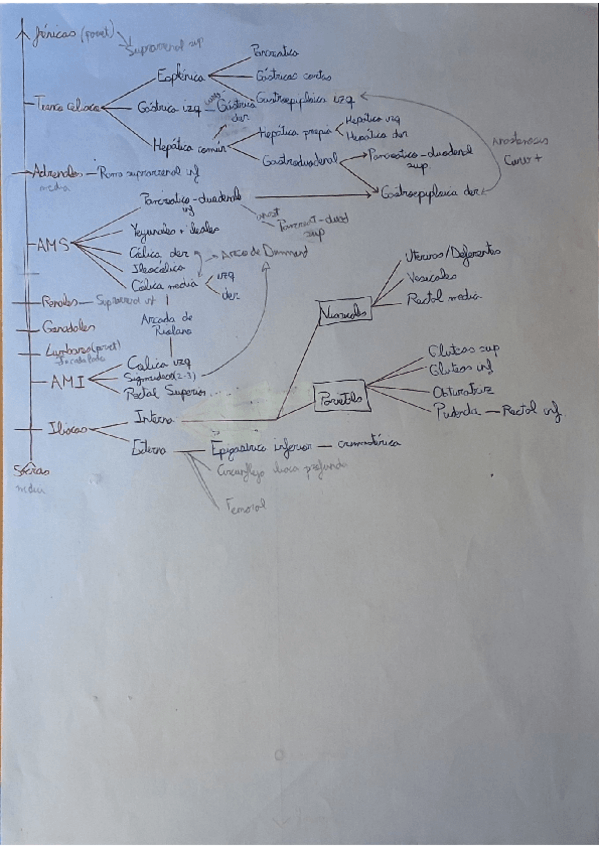 fónicas (paret)
Suprarrenal sup
Pancreática
Esplénica
Gástricas cortas
Gastroepiploica izq
Tronco celiaco
Gástrica izq
Gástrica der
Hepática común
Hepática propia
Hepática izq
Hepática der
Gastroduodenal
Pancreático-duodenal sup
Gastroepiploica der
anastomosis
Curv +
Adrenales
media
Rama suprarrenal inf
Pancreático-duodenal inf
anast
Pancreat-duod sup
AMS
Yeyunales + ileales
Cólica der
Arco de Drummond
Ileocólica
Cólica media
izq
der
Renales
Suprarrenal inf
Arcada de Riolano
Gonadales
Lumbares (paret)
AMI
Colica izq
Sigmoideas (2-3)
Rectal Superior
Iliacas
Interna
Externa
Viscerales
Uterinas/Deferentes
Vesicales
Rectal media
Parietales
Gluteas sup
Gluteas inf
Obturatriz
Pudenda
Rectal inf.
Epigástrica inferior
cremastérica
Circunfleja iliaca profunda
Femoral
Sacras
media